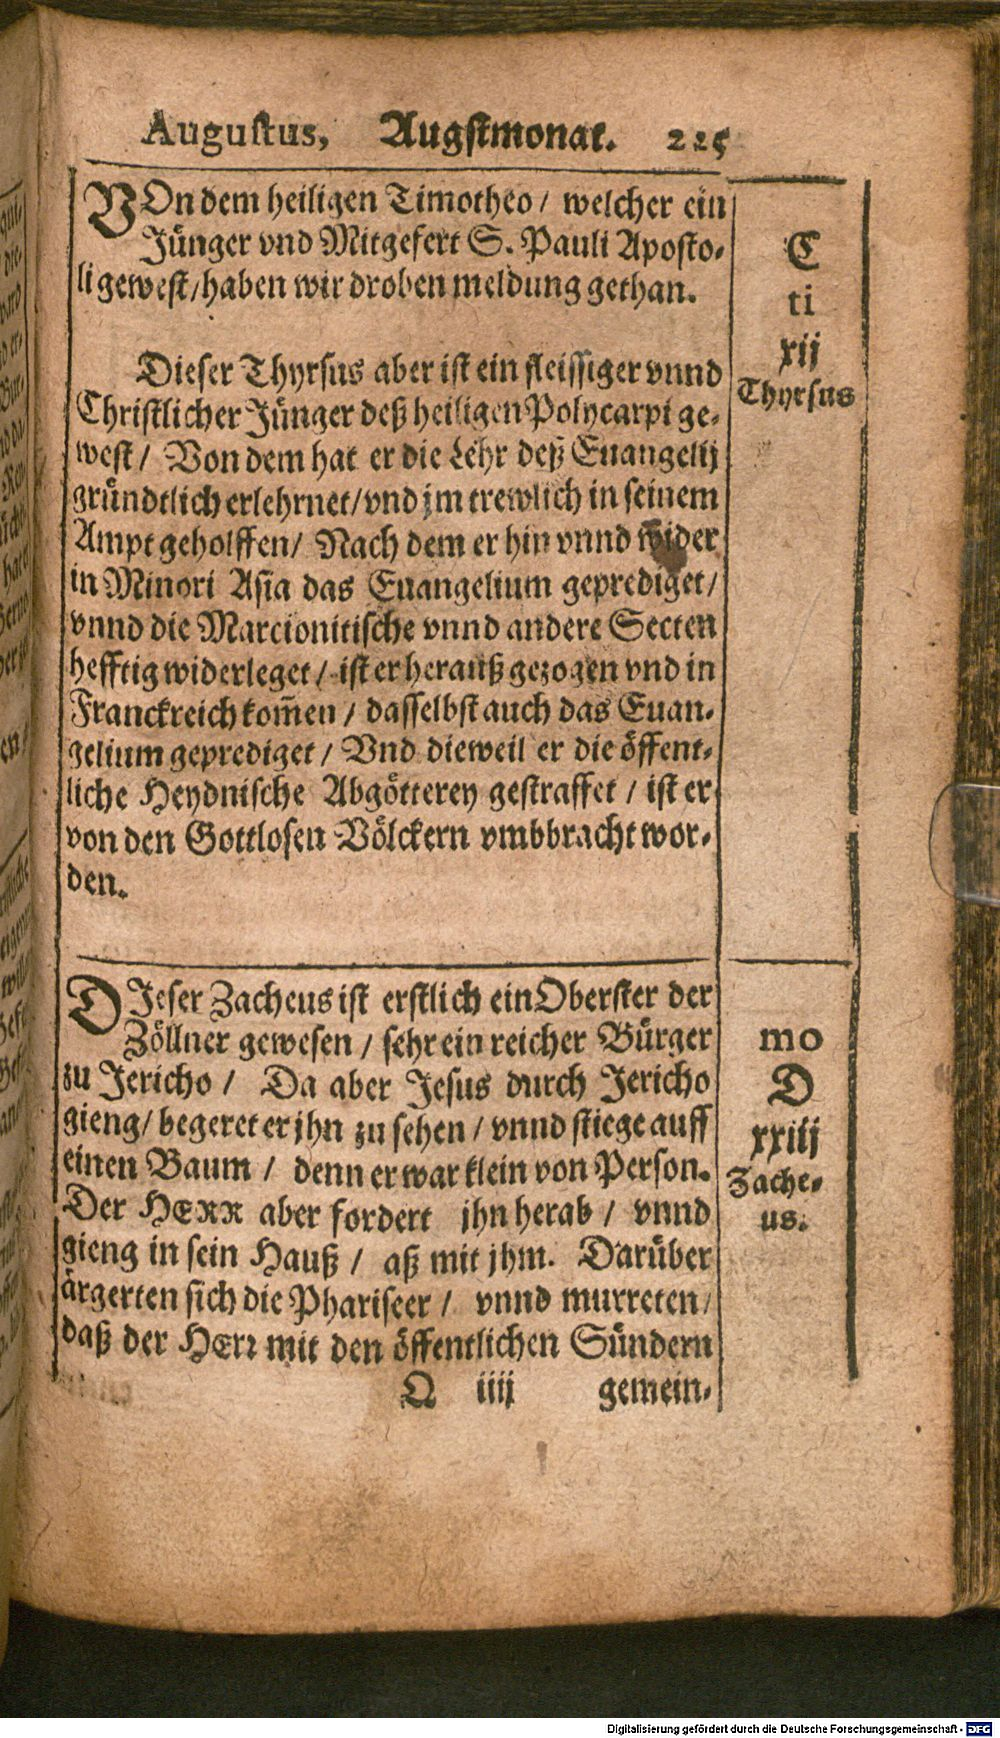 Augustus, Augstmonat. 225
VOn dem heiligen Timotheo / welcher ein
Jünger vnd Mitgefert S. Pauli Aposto-
li gewest / haben wir droben meldung gethan.
C
ti
xij
Thyrsus
Dieser Thyrsus aber ist ein fleissiger vnnd
Christlicher Jünger deß heiligen Polycarpi ge-
west / Von dem hat er die Lehr deß Euangelij
gründtlich erlehrnet / vnd jm trewlich in seinem
Ampt geholffen / Nach dem er hin vnnd wider
in Minori Asia das Euangelium geprediget /
vnnd die Marcionitische vnnd andere Secten
hefftig widerleget / ist er herauß gezogen vnd in
Franckreich kom̃en / dasselbst auch das Euan-
gelium geprediget / Vnd dieweil er die öffent-
liche Heydnische Abgötterey gestraffet / ist er
von den Gottlosen Völckern vmbbracht wor-
den.
DIeser Zacheus ist erstlich ein Oberster der
Zöllner gewesen / sehr ein reicher Bürger
zu Jericho / Da aber Jesus durch Jericho
gieng / begeret er jhn zu sehen / vnnd stiege auff
einen Baum / denn er war klein von Person.
Der HERR aber fordert jhn herab / vnnd
gieng in sein Hauß / aß mit jhm. Darüber
ärgerten sich die Phariseer / vnnd murreten /
daß der HErr mit den öffentlichen Sündern
mo
D
xxiij
Zache-
us.
Q iiij gemein-
Digitalisierung gefördert durch die Deutsche Forschungsgemeinschaft - DFG